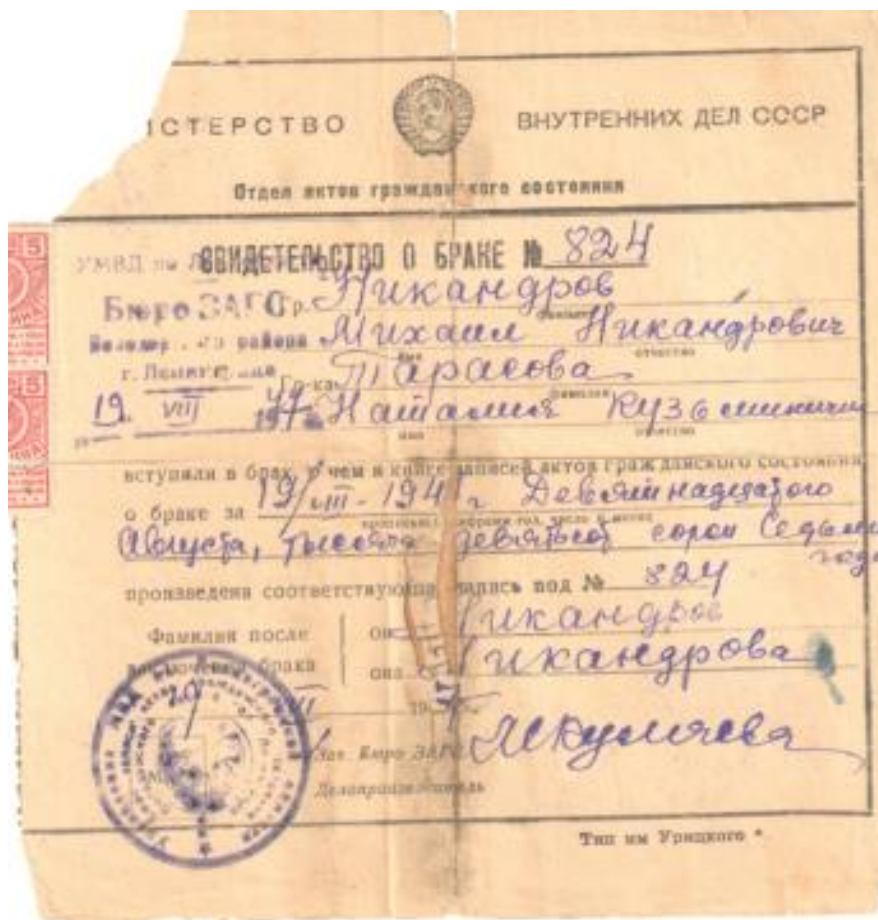 ИСТЕРСТВО ВНУТРЕННИХ ДЕЛ СССР
Отдел актов гражданского состояния
УМВД по
СВИДЕТЕЛЬСТВО О БРАКЕ № 824
Бюро ЗАГС
Гр. Никандров
фамилия
района Михаил Никандрович
имя отчество
г. Ленинграда
Гр-ка Тарасова
фамилия
19 VIII 1947 Наталия
имя отчество
вступили в брак, о чем в книге записей актов гражданского состояния
о браке за 19/VIII-1947 г Девятнадцатого
прописью и цифрами год, число и месяц
Августа, тысяча девятьсот сорок Седьмого
года
произведена соответствующая запись под № 824
Фамилия после он Никандров
заключения брака она Никандрова
Зав. Бюро ЗАГС
Делопроизводитель
Тип им Урицкого